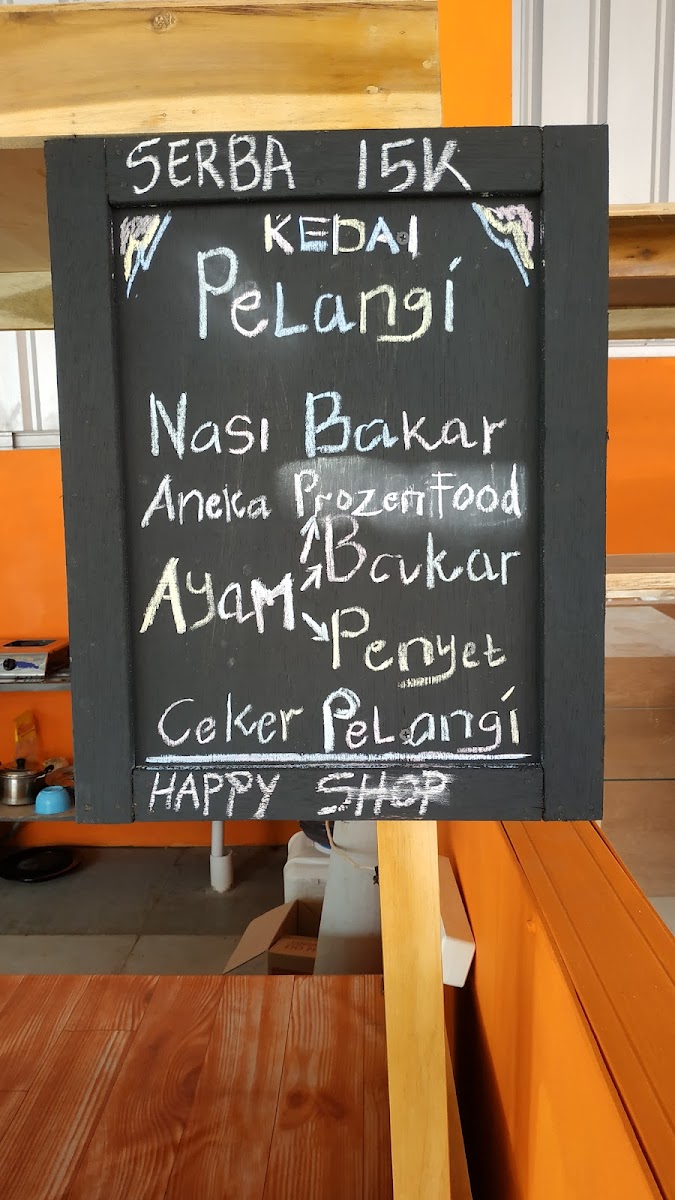 SERBA 15K
KEDAI
PeLangi
Nasi Bakar
Aneka Prozen Food
Bakar
Ayam
Penyet
Ceker PeLangi
HAPPY SHOP